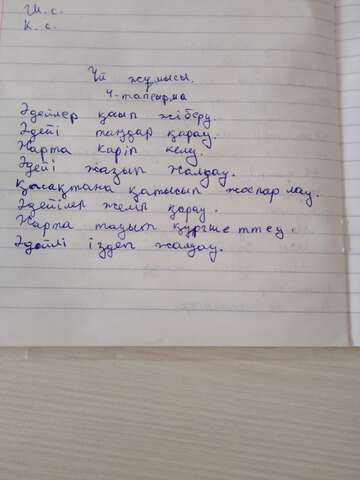 Ш. с.
К. с.
Үй жұмысы.
4-тапсырма
Әдейлер қалып жіберу.
Әдейі таңдар қарау.
Жарта кәріп келу.
Әдейі жазып жалдау.
қатысып жоспар лау.
Әдейілер желіп қарау.
Жарта тазып
Әдейлі іздеп жалдау.